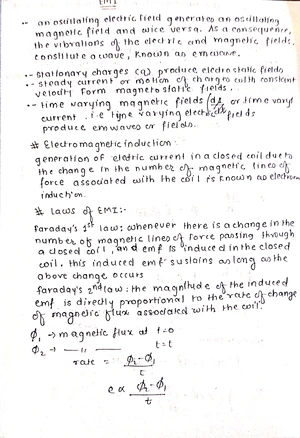 EMI
-- an oscillating electric field generates an oscillating
magnetic field and vice versa. As a consequence,
the vibrations of the electric and magnetic fields,
constitute a wave, known as emwave.
-- stationary charges (q) produce electrostatic fields
-- steady current or motion of charges with constant
velocity form magnetostatic fields.
-- time varying magnetic fields or time varying
current. i.e time varying electric fields
produce emwaves or fields.
# Electromagnetic induction:
generation of eletric current in a closed coil due to
the change in the number of magnetic lines of
force associated with the coil is known as electrom
induction.
# Laws of EMI:-
Faraday's 1st law: whenever there is a change in the
number of magnetic lines of force passing through
a closed coil, and emf is induced in the closed
coil. this induced emf sustains as long as the
above change occurs
Faraday's 2nd law: the magnitude of the induced
emf is directly proportional to the rate of change
of magnetic flux associated with the coil.
ϕ₁ → magnetic flux at t=0
ϕ₂ → —〃— t=t
rate = ϕ₂-ϕ₁ / t
e ∝ ϕ₂-ϕ₁ / t